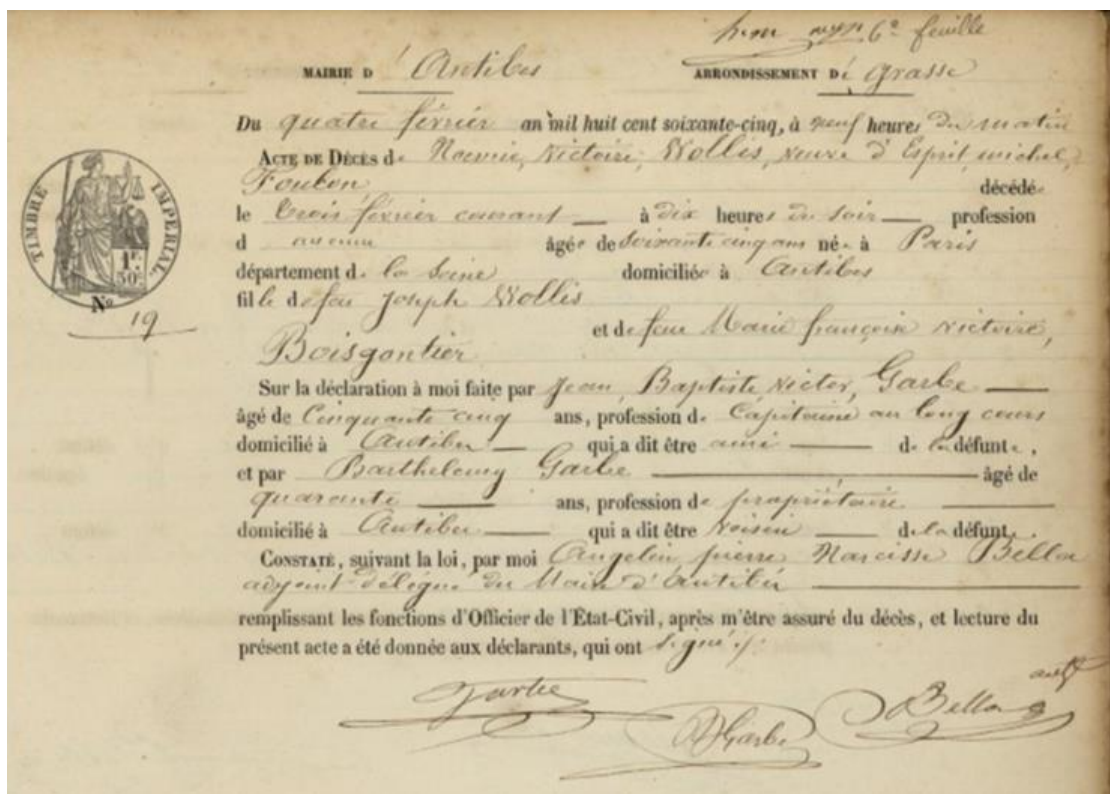 6e feuille
MAIRIE D'Antibes ARRONDISSEMENT De Grasse
Du quatre février an mil huit cent soixante-cinq, à neuf heures du matin
ACTE DE DÉCÈS de Noemie, Victoire, Wollis, veuve d'Esprit, michel,
Foubon décédée
le trois février courant à dix heures du soir profession
d aucune âgée de soixante cinq ans née à Paris
département de la Seine domiciliée à Antibes
fille de feu Joseph Wollis
et de feue Marie françoise victoire,
Boisgontier
Sur la déclaration à moi faite par Jean, Baptiste Victor, Garbe
âgé de Cinquante cinq ans, profession de Capitaine au long cours
domicilié à Antibes qui a dit être ami de la défunte,
et par Barthelemy Garbe âgé de
quarante ans, profession de propriétaire
domicilié à Antibes qui a dit être voisin de la défunte.
CONSTATÉ, suivant la loi, par moi Angelin pierre Narcisse Bellon
adjoint délégué du Maire d'Antibes
remplissant les fonctions d'Officier de l'État-Civil, après m'être assuré du décès, et lecture du
présent acte a été donnée aux déclarants, qui ont signé
Garbe
BGarbe
Bellon
TIMBRE IMPÉRIAL.
1F.
50C.
No
19